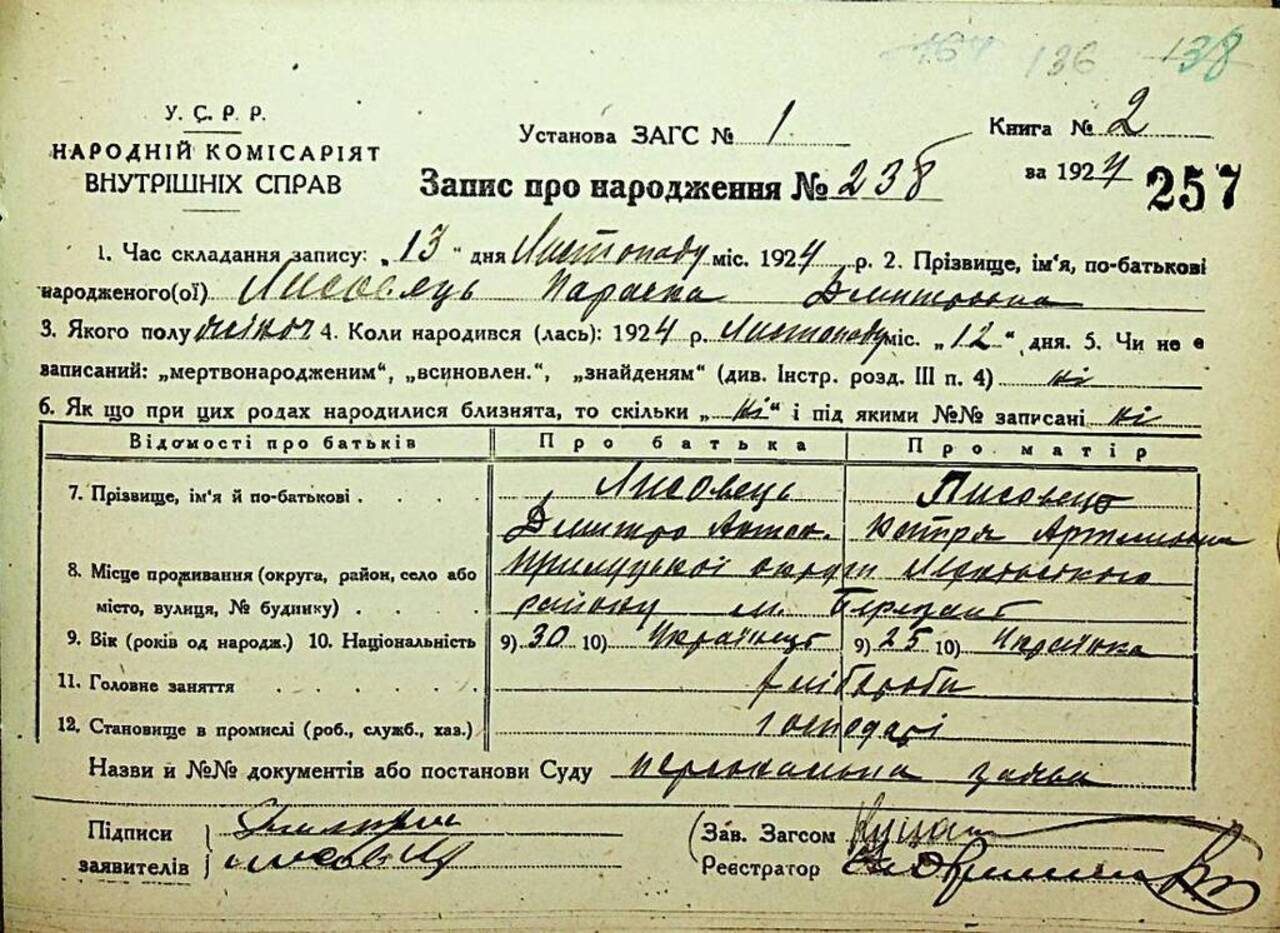 136 138
У. С. Р. Р.
НАРОДНІЙ КОМІСАРІЯТ
ВНУТРІШНІХ СПРАВ
Установа ЗАГС № 1
Книга № 2
за 1924 257
Запис про народження № 238
1. Час складання запису: „13" дня Листопаду міс. 1924 р. 2. Прізвище, ім'я, по-батькові
народженого(ої) Лисовець Параска Дмитровна
3. Якого полу жіноч 4. Коли народився (лась): 1924 р. Листопаду міс. „12" дня. 5. Чи не є
записаний: „мертвонародженим", „всиновлен.", „знайденям" (див. Інстр. розд. III п. 4) ні
6. Як що при цих родах народилися близнята, то скільки „ні" і під якими №№ записані ні
Відомості про батьків Про батька Про матір
7. Прізвище, ім'я й по-батькові . . . . Лисовець Лисовець
Дмитро Антон. Катря Артемовна
8. Місце проживання (округа, район, село або Прилуцкої округи
місто, вулиця, № будинку) . . . . району м. Березань
9. Вік (років од народж.) 10. Національність 9) 30 10) Українець 9) 25 10) Українка
11. Головне заняття . . . . . . . хлібороби
12. Становище в промислі (роб., служб., хаз.) господарі
Назви й №№ документів або постанови Суду персональна заява
Підписи Дмитро
заявителів Лисовец
Зав. Загсом
Реєстратор